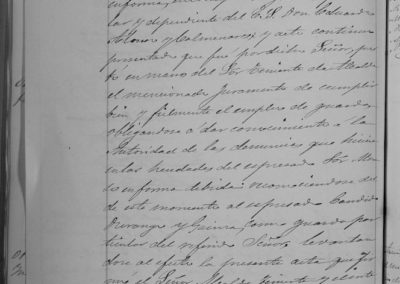 en forma,
lar y dependiente del E. S. Don Eduardo
Alonso y Colmenares, y acto continuo
presentado que fué por dicho Señor, pres
tó en mano del Sor Teniente de Alcalde
el mencionado juramento de cumplir
bien y fielmente el empleo de guarda,
obligandose a dar conocimiento á la
Autoridad de las denuncias que hicie
re en las heredades del espresado Sor Alon
so en forma debida; reconociendose des
de este momento al espresado Candido
Durango y Guerra como guarda par
ticular del referido Señor, levantan
dose al efecto la presente acta que fir
mó el Señor Alcalde Teniente y el inte